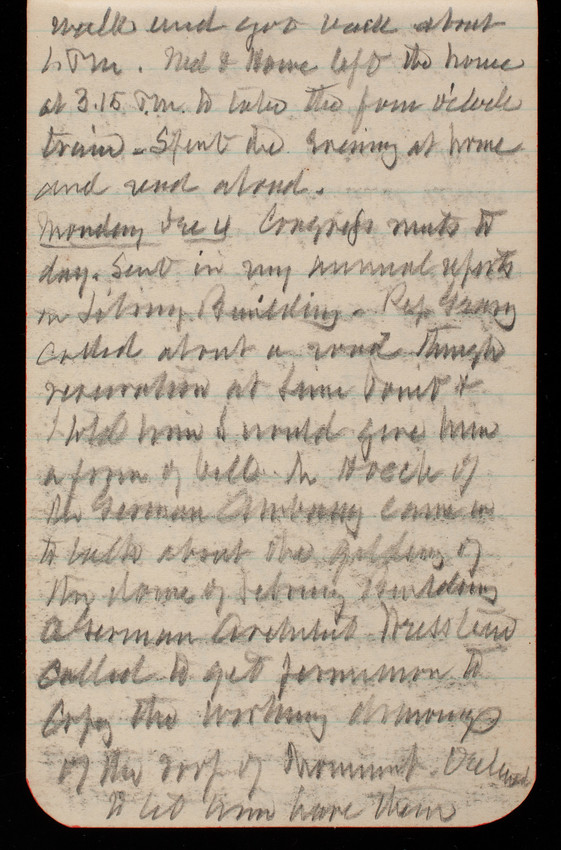 walk and got back about
6 P.M. Ned & Howe left the house
at 3.15 P.M. to take the four o'clock
train - Spent the Evening at home
and read aloud.
Monday Dec 4 Congress meets to
day. Sent in my annual reports
on Library Building - Rep Geary
called about a road through
reservation at Lime Point &
I told him I would give him
a form of bill. Mr Hoech of
the German Embassy came in
to talk about the gilding of
the dome of Library Building
A German Architect called to get permission to
copy the working drawings
of the roof of Monument. Declined
to let him have them